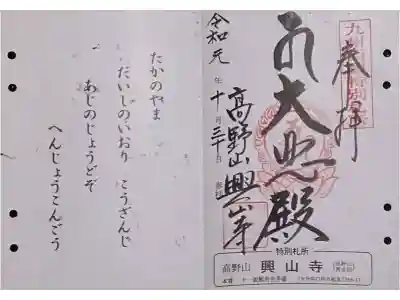 奉拝
大照殿
高野山 興山寺
令和元年十月三十日
特別札所
高野山 興山寺
本尊 十一面観世音菩薩
たかのやま
だいしのいおり こうざんじ
あじのじょうどぞ
へんじょうこんごう